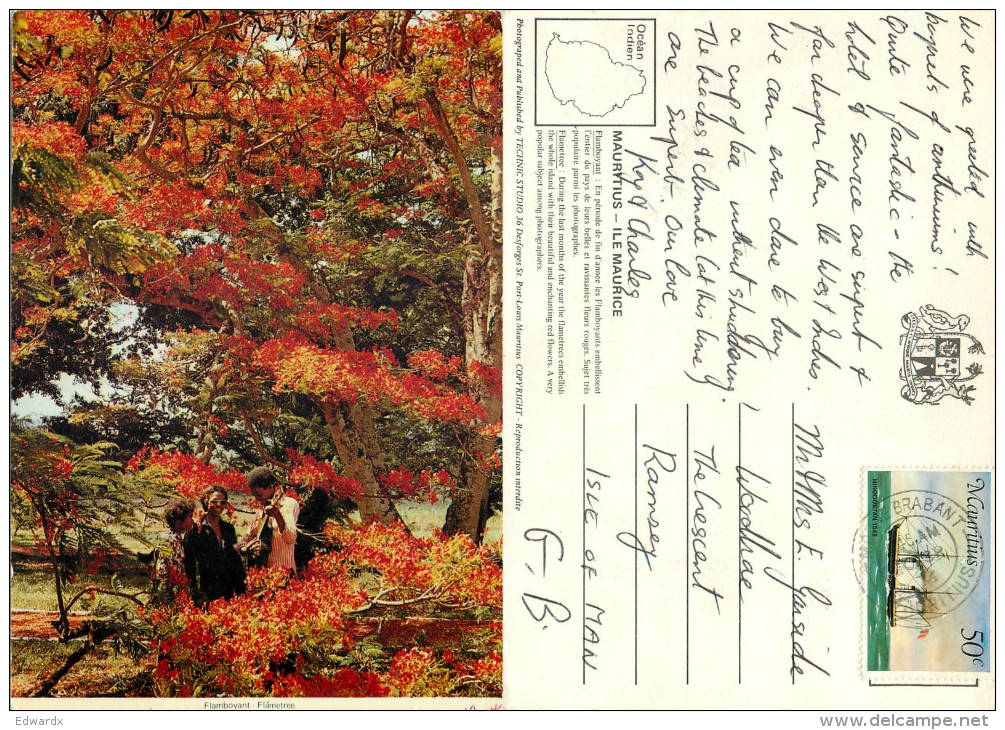 We were greeted with
boquets of anthuriums!
Quite fantastic - the
hotel & service are elegant &
far cheaper then the West Indies.
We can even dare to buy
a cup of tea without shuddering.
The beaches & climate (at this time)
are superb. Our love
Kay & Charles
Océan
Indien
MAURITIUS – ILE MAURICE
Flamboyant : En période de fin d'annee les Flamboyants embellissent
l'entier du pays de leurs belles et ravissantes fleurs rouges. Sujet très
populaire parmi les photographes.
Flametree : During the last months of the year the flametrees embellish
the whole island with their beautiful and enchanting red flowers. A very
popular subject among photographers.
Photograped and Published by TECHNIC STUDIO 36 Desforges St. Port-Louis Mauritius COPYRIGHT - Reproduction interdite
Mauritius
HINDOOSTAN 1842
50c
BRABANT
MAURITIUS
Mr & Mrs E. Garside
1, Woodlae
The Crescent
Ramsey
ISLE OF MAN
G. B.
Flamboyant - Flametree
Edwardx
www.delcampe.net